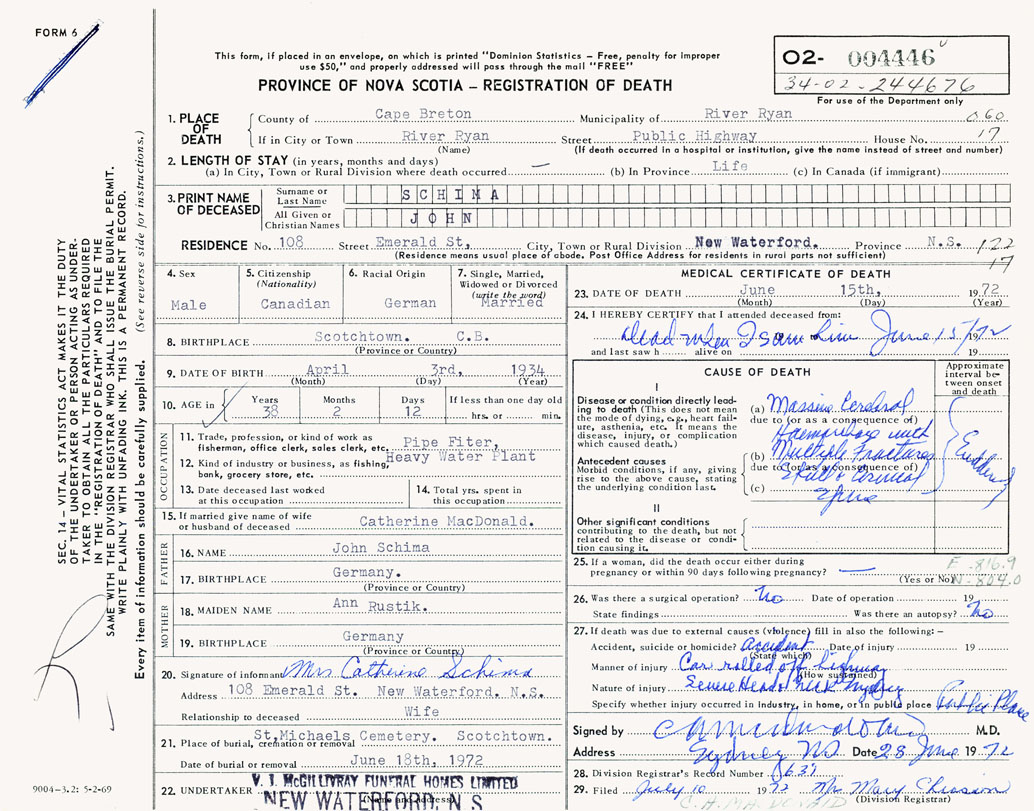 FORM 6
This form, if placed in an envelope, on which is printed "Dominion Statistics – Free, penalty for improper
use $50," and properly addressed will pass through the mail "FREE"
PROVINCE OF NOVA SCOTIA – REGISTRATION OF DEATH
O2- 004446
34-02-244676
For use of the Department only
SEC. 14 – VITAL STATISTICS ACT MAKES IT THE DUTY
OF THE UNDERTAKER OR PERSON ACTING AS UNDER-
TAKER TO OBTAIN ALL THE PARTICULARS REQUIRED
IN THE "REGISTRATION OF DEATH" AND TO FILE THE
SAME WITH THE DIVISION REGISTRAR WHO SHALL ISSUE THE BURIAL PERMIT.
WRITE PLAINLY WITH UNFADING INK. THIS IS A PERMANENT RECORD.
Every item of information should be carefully supplied. (See reverse side for instructions.)
1. PLACE OF DEATH
County of Cape Breton Municipality of River Ryan 060
If in City or Town River Ryan Street Public Highway House No. 17
(Name) (If death occurred in a hospital or institution, give the name instead of street and number)
2. LENGTH OF STAY (in years, months and days)
(a) In City, Town or Rural Division where death occurred — (b) In Province Life (c) In Canada (if immigrant)
3. PRINT NAME OF DECEASED
Surname or Last Name SCHIMA
All Given or Christian Names JOHN
RESIDENCE No. 108 Street Emerald St, City, Town or Rural Division New Waterford. Province N.S. 122
(Residence means usual place of abode. Post Office Address for residents in rural parts not sufficient) 17
4. Sex Male
5. Citizenship (Nationality) Canadian
6. Racial Origin German
7. Single, Married, Widowed or Divorced (write the word) Married
8. BIRTHPLACE Scotchtown. C.B.
(Province or Country)
9. DATE OF BIRTH April 3rd, 1934
(Month) (Day) (Year)
10. AGE in Years 38 Months 2 Days 12 If less than one day old hrs. or min.
OCCUPATION
11. Trade, profession, or kind of work as fisherman, office clerk, sales clerk, etc. Pipe Fiter,
12. Kind of industry or business, as fishing, bank, grocery store, etc. Heavy Water Plant
13. Date deceased last worked at this occupation
14. Total yrs. spent in this occupation
15. If married give name of wife or husband of deceased Catherine MacDonald.
FATHER
16. NAME John Schima
17. BIRTHPLACE Germany.
(Province or Country)
MOTHER
18. MAIDEN NAME Ann Rustik.
19. BIRTHPLACE Germany
(Province or Country)
20. Signature of informant Mrs Catherine Schima
Address 108 Emerald St. New Waterford. N.S.
Relationship to deceased Wife
21. Place of burial, cremation or removal St,Michaels Cemetery. Scotchtown.
Date of burial or removal June 18th, 1972
22. UNDERTAKER V. J. McGILLIVRAY FUNERAL HOMES LIMITED
NEW WATERFORD, N S
(Name and address)
9004-3.2: 5-2-69
MEDICAL CERTIFICATE OF DEATH
23. DATE OF DEATH June 15th, 1972
(Month) (Day) (Year)
24. I HEREBY CERTIFY that I attended deceased from:
Dead when I saw him June 15/72
and last saw h alive on 19
CAUSE OF DEATH
Approximate interval between onset and death
I
Disease or condition directly leading to death (This does not mean the mode of dying, e.g., heart failure, asthenia, etc. It means the disease, injury, or complication which caused death.)
(a) Massive Cerebral
due to (or as a consequence of)
Haemorrhage with
Antecedent causes
Morbid conditions, if any, giving rise to the above cause, stating the underlying condition last.
(b) Multiple Fractures
due to (or as a consequence of)
Skull & Cervical
(c) Spine
II
Other significant conditions contributing to the death, but not related to the disease or condition causing it.
25. If a woman, did the death occur either during pregnancy or within 90 days following pregnancy? —
(Yes or No)
E-816.9
N-804.0
26. Was there a surgical operation? No Date of operation 19
State findings Was there an autopsy? No
27. If death was due to external causes (violence) fill in also the following: –
Accident, suicide or homicide? Accident Date of injury 19
(State which)
Manner of injury Car rolled off highway
(How sustained)
Nature of injury Severe Head & Neck Injury
Specify whether injury occurred in industry, in home, or in public place Public Place
Signed by M.D.
Address Sydney NS Date 28 June 1972
28. Division Registrar's Record Number 637
29. Filed July 10 1972 Mrs Mary Chiasson
(Division Registrar)